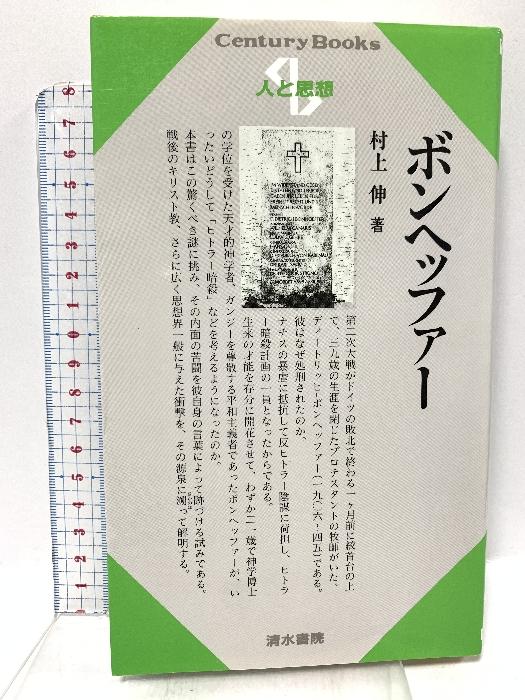 Century Books
人と思想
ボンヘッファー
村上 伸 著
第二次大戦がドイツの敗北で終わる一ヶ月前に絞首台の上
で、三九歳の生涯を閉じたプロテスタントの牧師がいた。
ディートリッヒ=ボンヘッファー(一九〇六-四五)である。
彼はなぜ処刑されたのか。
ナチスの暴虐に抵抗して反ヒトラー陰謀に荷担し、ヒトラ
ー暗殺計画の一員となったからである。
生来の才能を存分に開花させて、わずか二一歳で神学博士
の学位を受けた天才的神学者、ガンジーを尊敬する平和主義者であったボンヘッファーが、い
ったいどうして「ヒトラー暗殺」などを考えるようになったのか。
本書はこの驚くべき謎に挑み、その内面の苦闘を彼自身の言葉によって跡づける試みである。
戦後のキリスト教、さらに広く思想界一般に与えた衝撃を、その源泉に溯って解明する。
清水書院